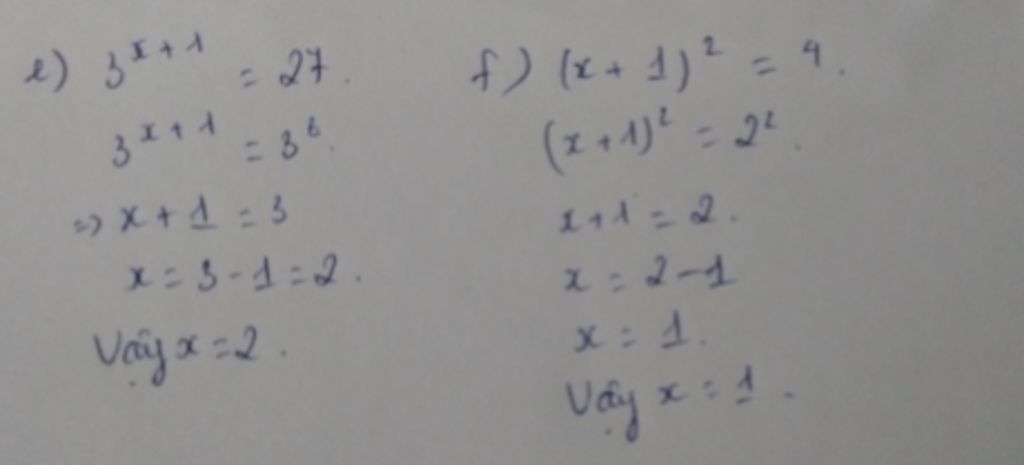 e) 3^{x+1} = 27.
3^{x+1} = 3^3.
=> x + 1 = 3
x = 3 - 1 = 2.
Vậy x = 2.
f) (x + 1)^2 = 4.
(x + 1)^2 = 2^2.
x + 1 = 2.
x = 2 - 1
x = 1.
Vậy x = 1.